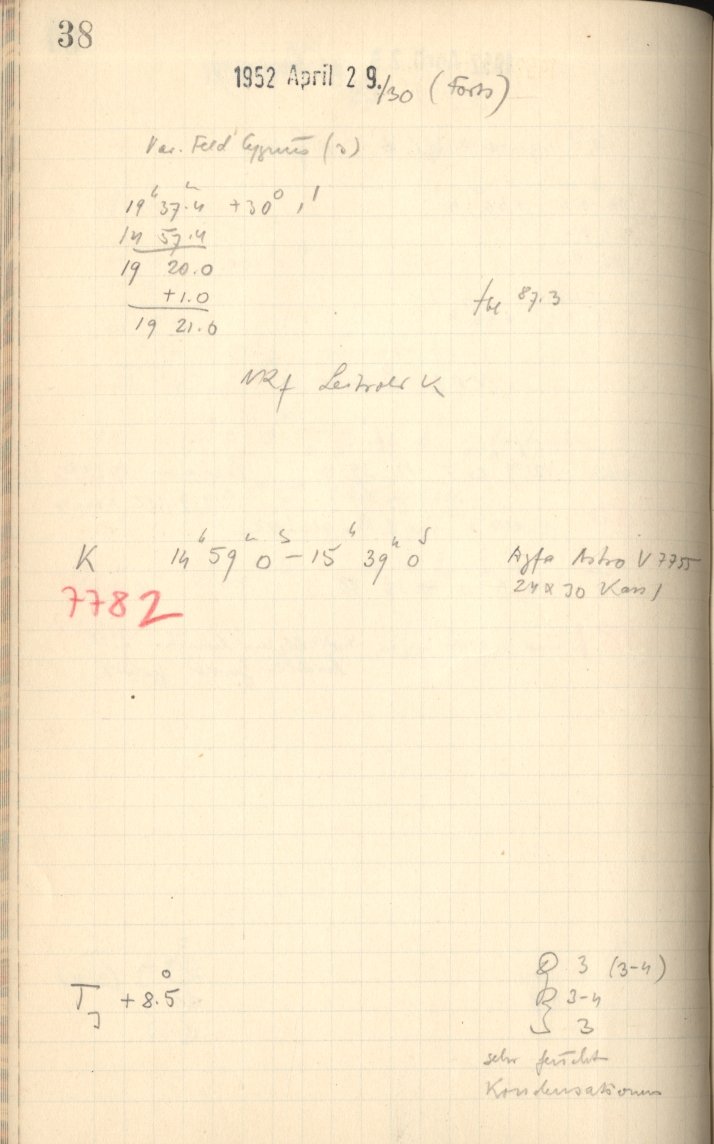 38
1952 April 29./30 (Forts)
Var. Feld Cygnus (3)
19ʰ 37ᵐ.4 +30° 1'
14 57.4
19 20.0
+1.0
19 21.0
87.3
Leitrohr K
K 14ʰ 59ᵐ 0ˢ – 15ʰ 39ᵐ 0ˢ Agfa Astro V 7755
7782 24 x 30 Kass 1
T_J +8°.5
3 (3-4)
R 3-4
3
sehr feucht
Kondensationen